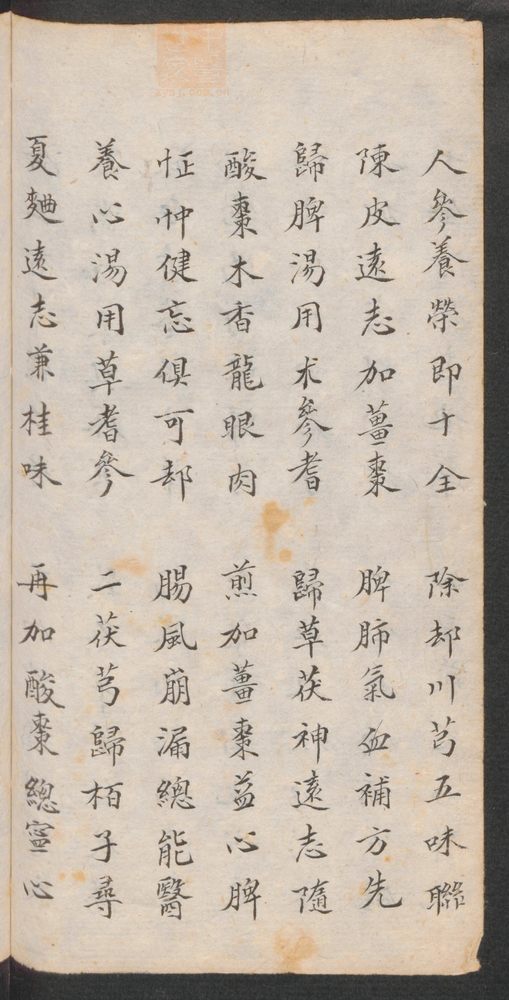 人參養榮即十全　除却川芎五味聯
陳皮遠志加薑棗　脾肺氣血補方先
歸脾湯用朮參耆　歸草茯神遠志隨
酸棗木香龍眼肉　煎加薑棗益心脾
怔忡健忘俱可却　腸風崩漏總能醫
養心湯用草耆參　二茯芎歸栢子尋
夏麯遠志兼桂味　再加酸棗總寧心